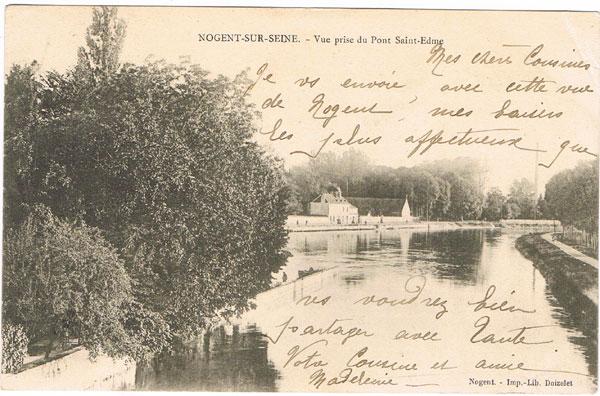 NOGENT-SUR-SEINE. - Vue prise du Pont Saint-Edme
Mes chères Cousines
Je vs envoie avec cette vue
de Nogent, mes baisers
les plus affectueux que
vs voudrez bien
partager avec Tante
Votre Cousine et amie
Madeleine
Nogent. - Imp.-Lib. Doizelet